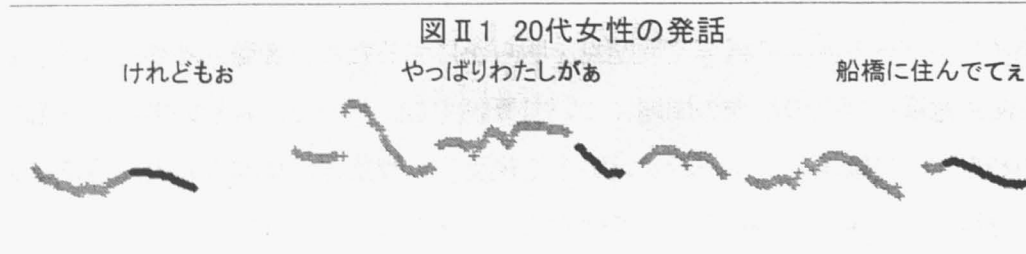 図Ⅱ1 20代女性の発話
けれどもぉ やっぱりわたしがぁ 船橋に住んでてぇ